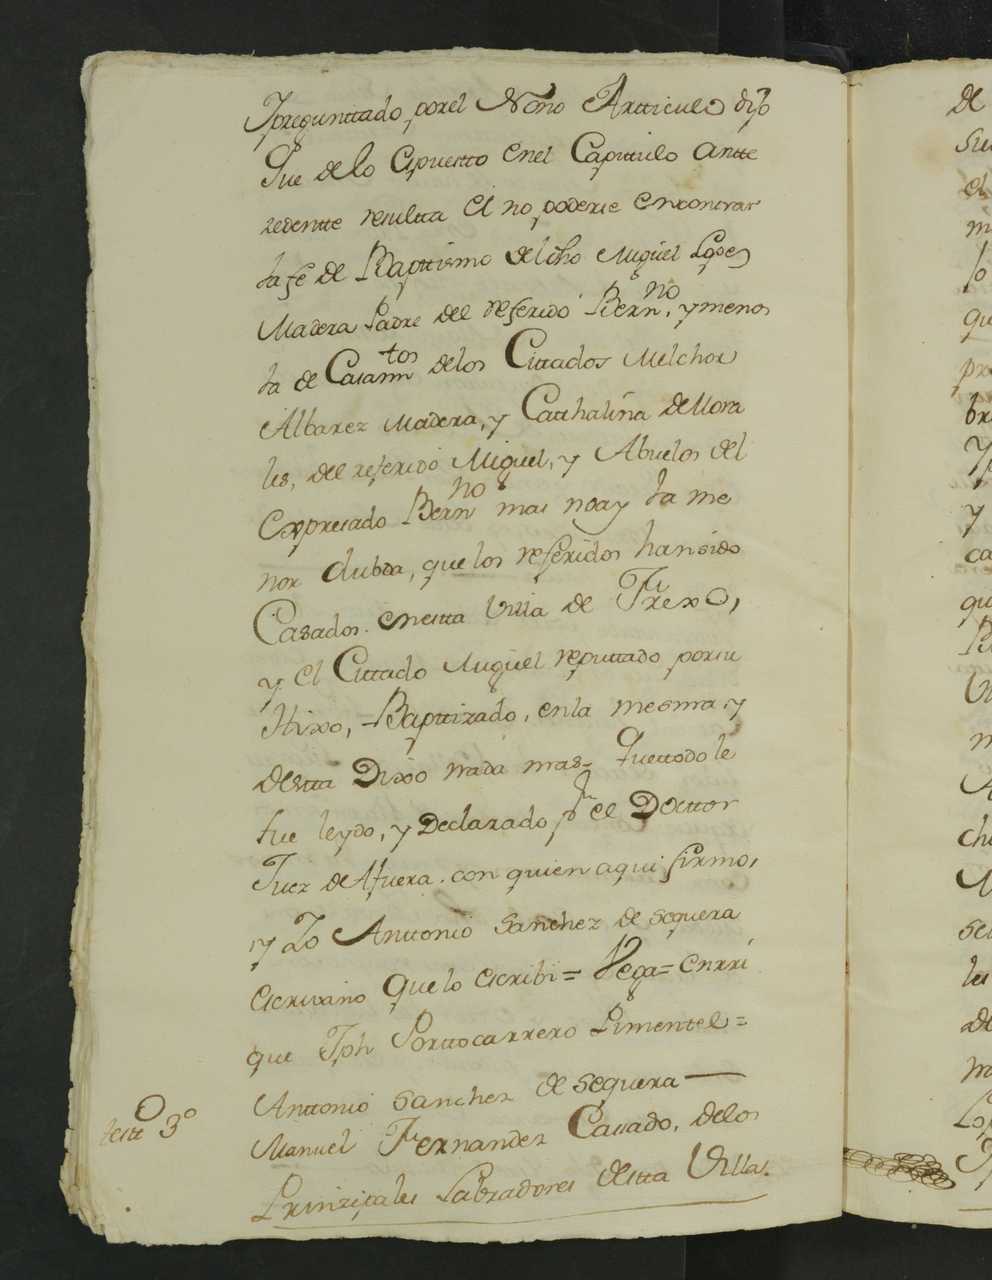 Ypregunttado, porel Nono Artticulo dijo
Que de lo Expuestto Enel Capittulo Antte
zedentte resultta El no poderse Encontrar
la fe de Bapttismo del dho Miguel Lopez
Madera Padre del referido Bernno, y menos
la de Casamtos delos Cittados Melchor
Albarez Madera, y Catthalina de Mora
les, del referido Miguel, y Abuelos del
Expresado Bernno mas noay la me
nor dubda, que los referidos hansido
Casados. enestta Villa de Frexo,
y El Cittado Miguel reputtado porsu
Hixo, Bapttizado, enla mesma, y
destta Dixo nada mas, Quettodo le
fue leydo, y Declarado pr el Docttor
Juez de Afuera. con quien aqui firmo,
y Yo Anttonio Sanchez de sequera
Escrivano Quelo escribi = Vega = Enrri
que Jph Porttocarrero Pimentel =
Anttonio Sanchez de Sequera
testto 3o
Manuel Fernandez Casado, delos
Prinzipales Labradores destta Villa.
de
su
el
m
lo
qu
pr
br
y
ca
qu
m
A
ch
se
la
de
m
Lop